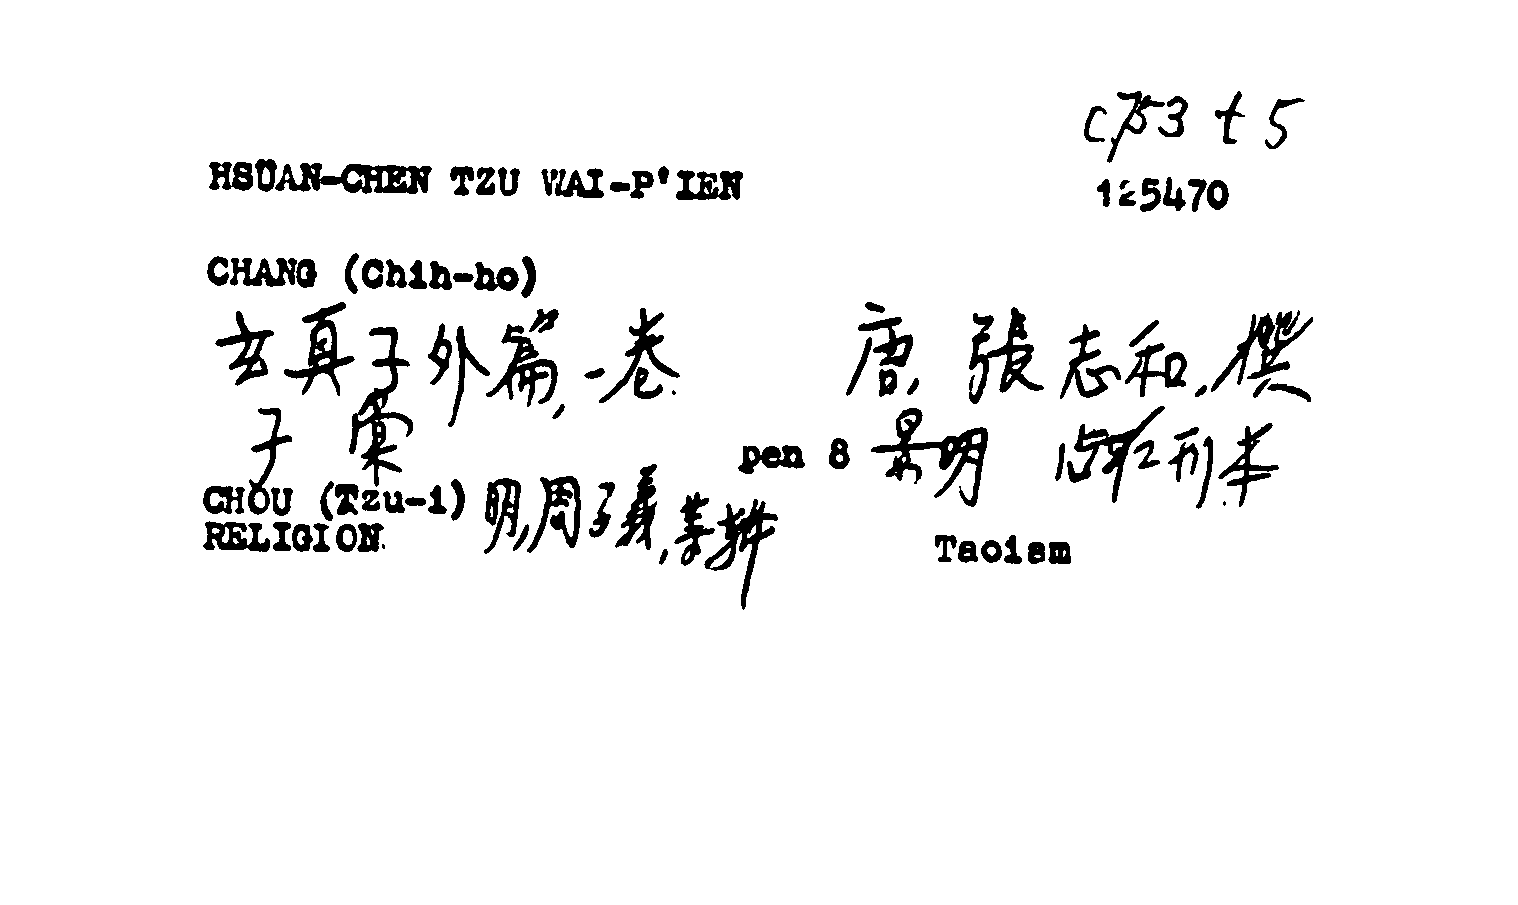 c.753 t 5
HSÜAN-CHEN TZU WAI-P'IEN 125470
CHANG (Chih-ho)
玄真子外篇,一卷 唐,張志和,撰
子彙 pen 8 景明 刊本
CHOU (Tzu-i) 明,周子義,等輯
RELIGION Taoism